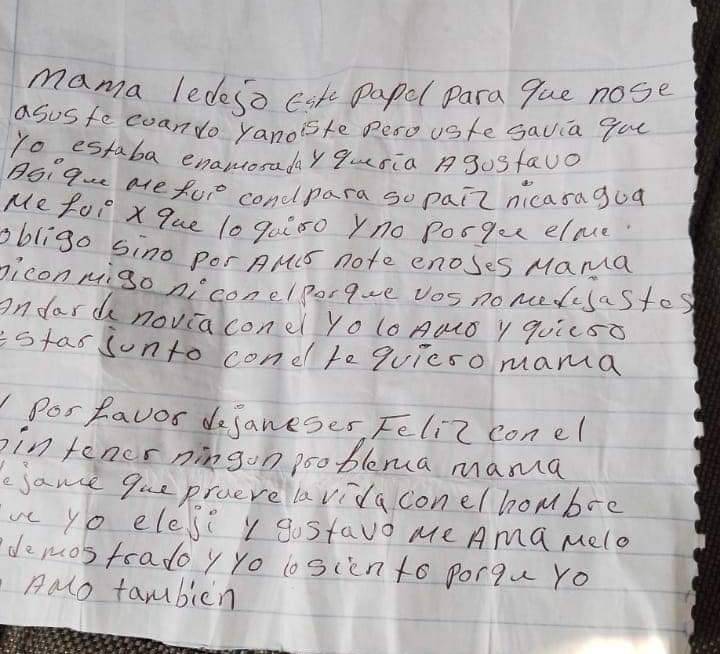 mama ledejo este papel para que nose
asuste cuando yanoiste pero uste savia que
Yo estaba enamorada y queria A gustavo
Asi que me fui conelpara su paiz nicaragua
Me foi x que lo quiro y no porque elme
obligo sino por AMor note enojes Mama
niconmigo ni conelporque vos nomedejastes
andar de novia con el Yo lo AMO y quiero
estar junto conel te quiero mama
Y Porfavor dejaneser Feliz con el
sin tener ningun problema mama
dejame que prueve la vida con el hombre
que yo eleji y gustavo Me Ama Melo
demostrado y Yo lo siento porqu Yo
AMO tambien